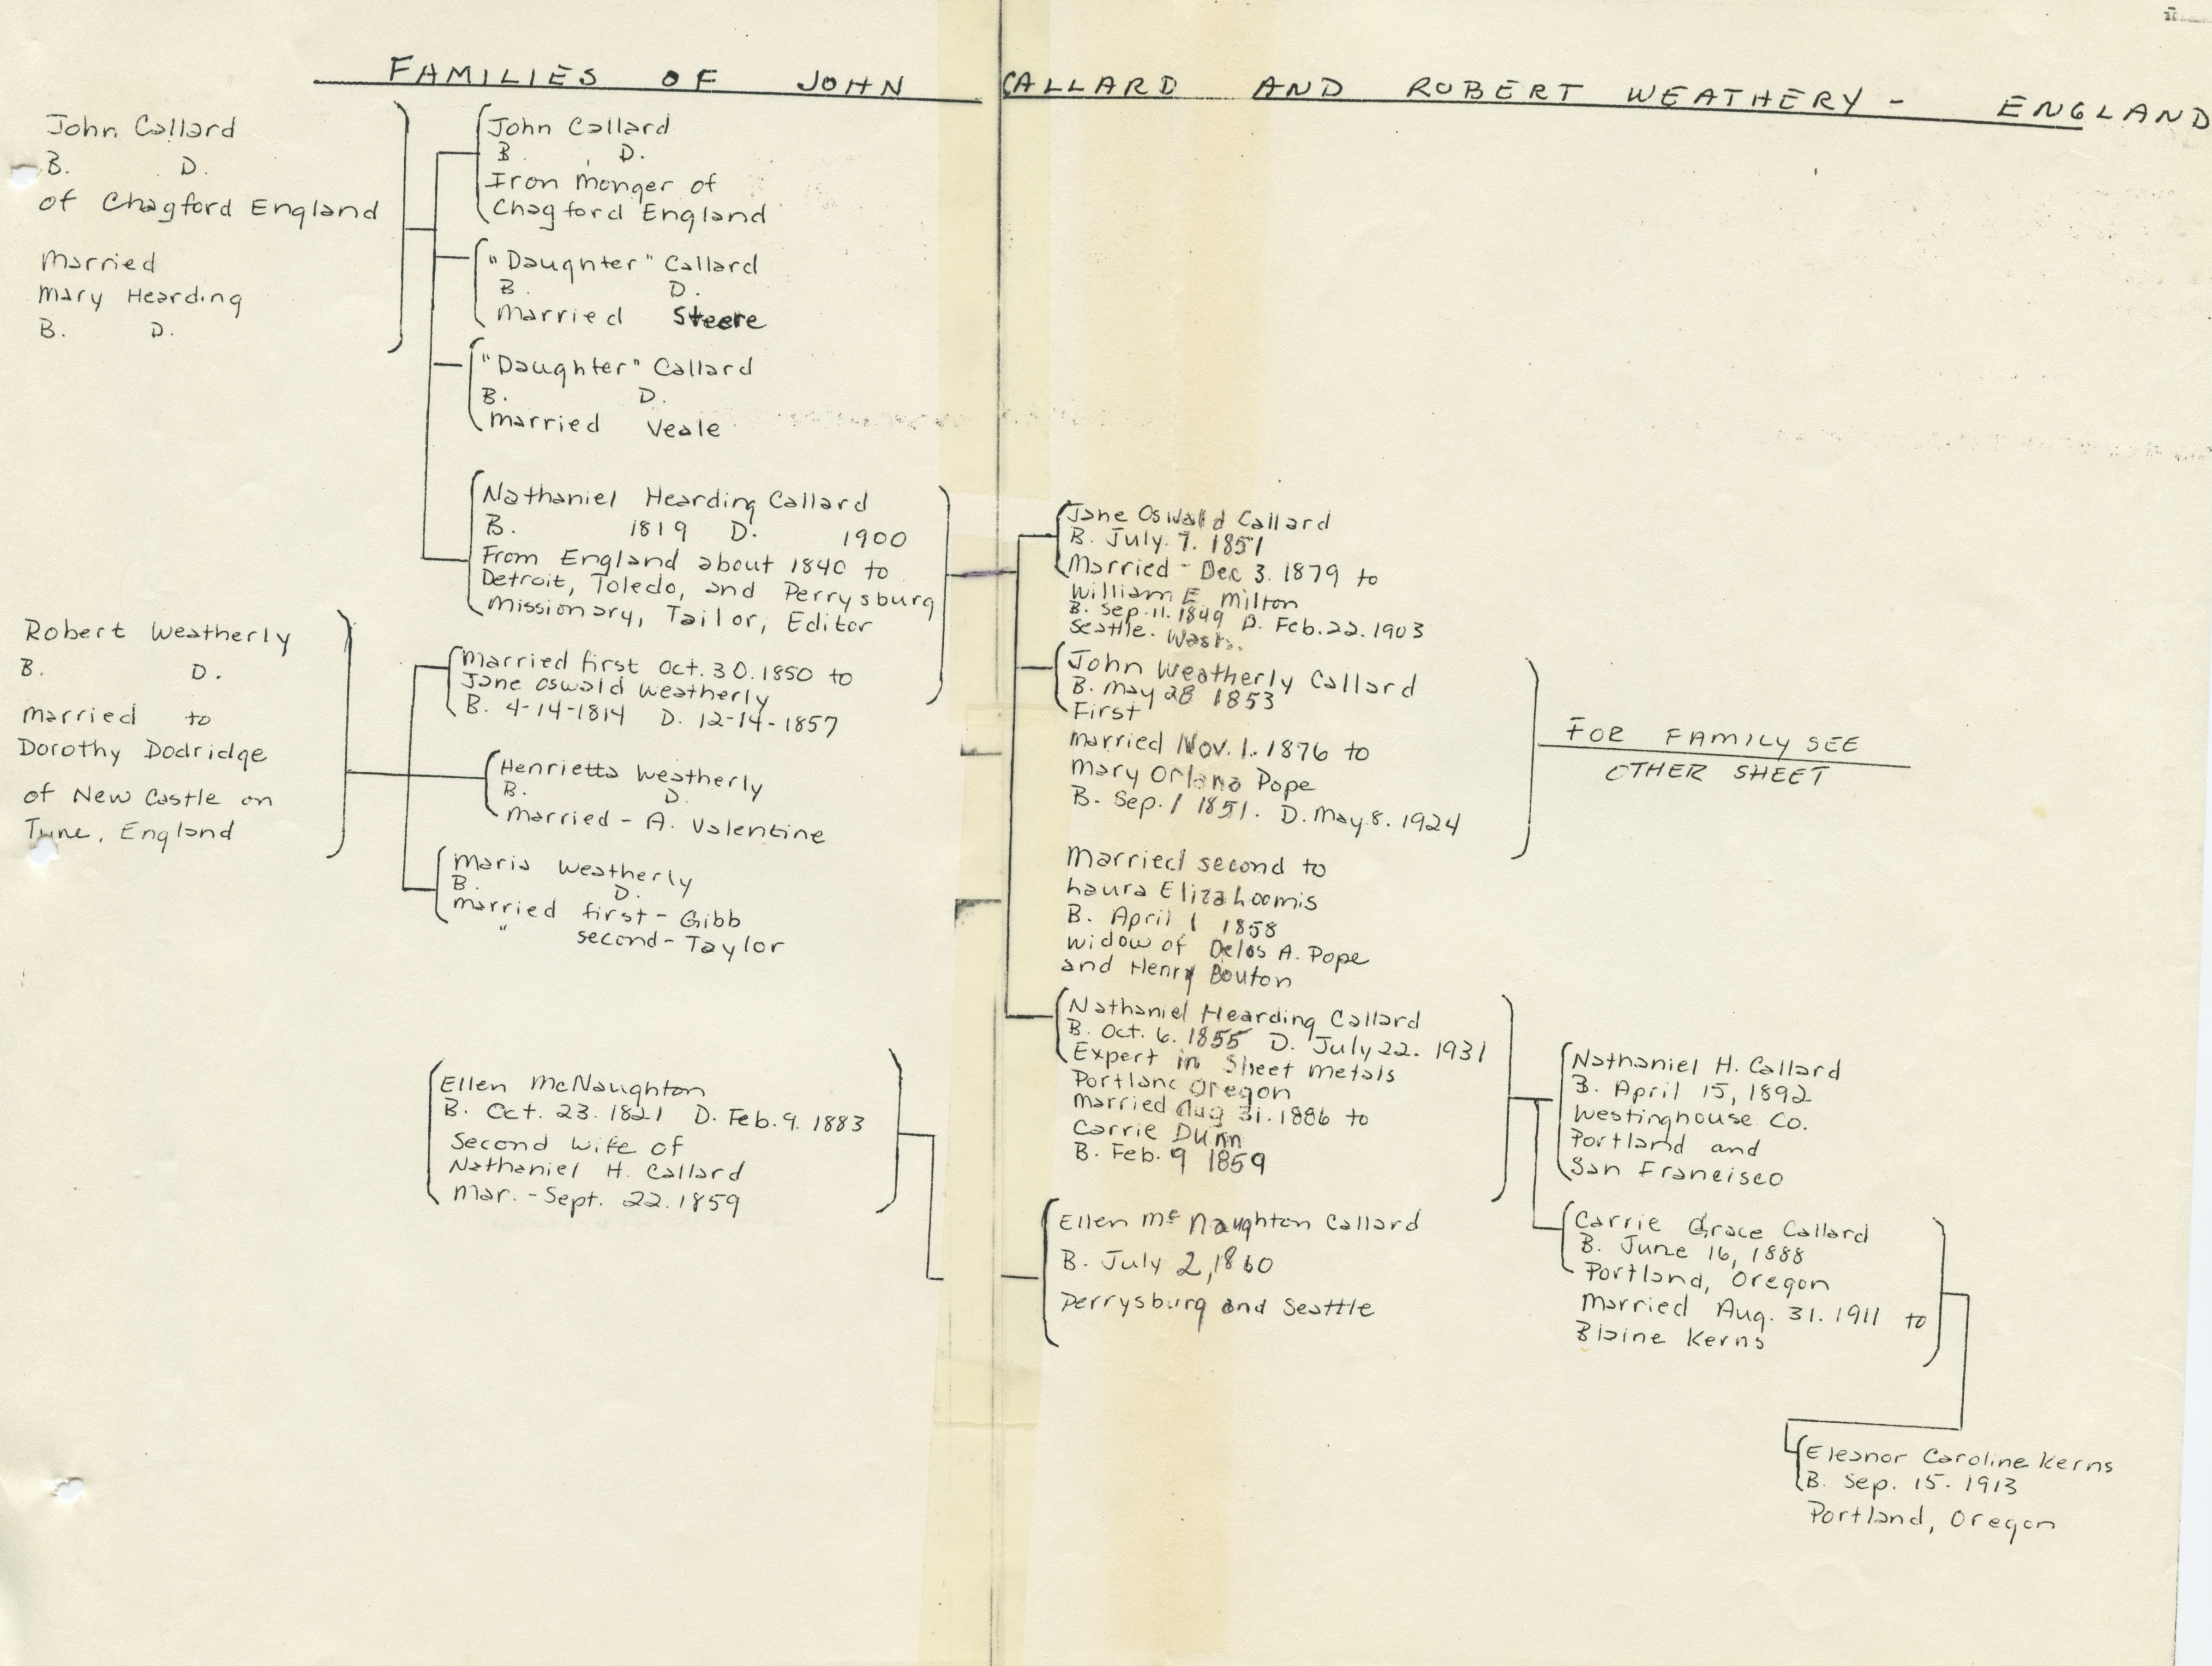 FAMILIES OF JOHN CALLARD AND ROBERT WEATHERY - ENGLAND
John Callard
B. D.
of Chagford England
Married
Mary Hearding
B. D.
John Callard
B. D.
Iron Monger of
Chagford England
"Daughter" Callard
B. D.
Married Steere
"Daughter" Callard
B. D.
Married Veale
Nathaniel Hearding Callard
B. 1819 D. 1900
From England about 1840 to
Detroit, Toledo, and Perrysburg
Missionary, Tailor, Editor
Robert Weatherly
B. D.
Married to
Dorothy Dodridge
of New Castle on
Tyne, England
Married first Oct. 30. 1850 to
Jane Oswald Weatherly
B. 4-14-1814 D. 12-14-1857
Henrietta Weatherly
B. D.
Married - A. Valentine
Maria Weatherly
B. D.
Married first - Gibb
" second - Taylor
Ellen McNaughton
B. Oct. 23. 1821 D. Feb. 9. 1883
Second Wife of
Nathaniel H. Callard
Mar. - Sept. 22. 1859
Jane Oswald Callard
B. July. 7. 1851
Married - Dec 3. 1879 to
William E Milton
B. Sep. 11. 1849 D. Feb. 22. 1903
Seattle. Wash.
John Weatherly Callard
B. May 28 1853
First
Married Nov. 1. 1876 to
Mary Orlana Pope
B. Sep. 1 1851. D. May 8. 1924
Married second to
Laura Eliza Loomis
B. April 1 1858
Widow of Delos A. Pope
and Henry Bouton
FOR FAMILY SEE
OTHER SHEET
Nathaniel Hearding Callard
B. Oct. 6. 1855 D. July 22. 1931
Expert in Sheet Metals
Portland Oregon
Married Aug 31. 1886 to
Carrie Dunn
B. Feb. 9 1859
Ellen Mc Naughton Callard
B. July 2, 1860
Perrysburg and Seattle
Nathaniel H. Callard
B. April 15, 1892
Westinghouse Co.
Portland and
San Francisco
Carrie Grace Callard
B. June 16, 1888
Portland, Oregon
Married Aug. 31. 1911 to
Blaine Kerns
Eleanor Caroline Kerns
B. Sep. 15. 1913
Portland, Oregon